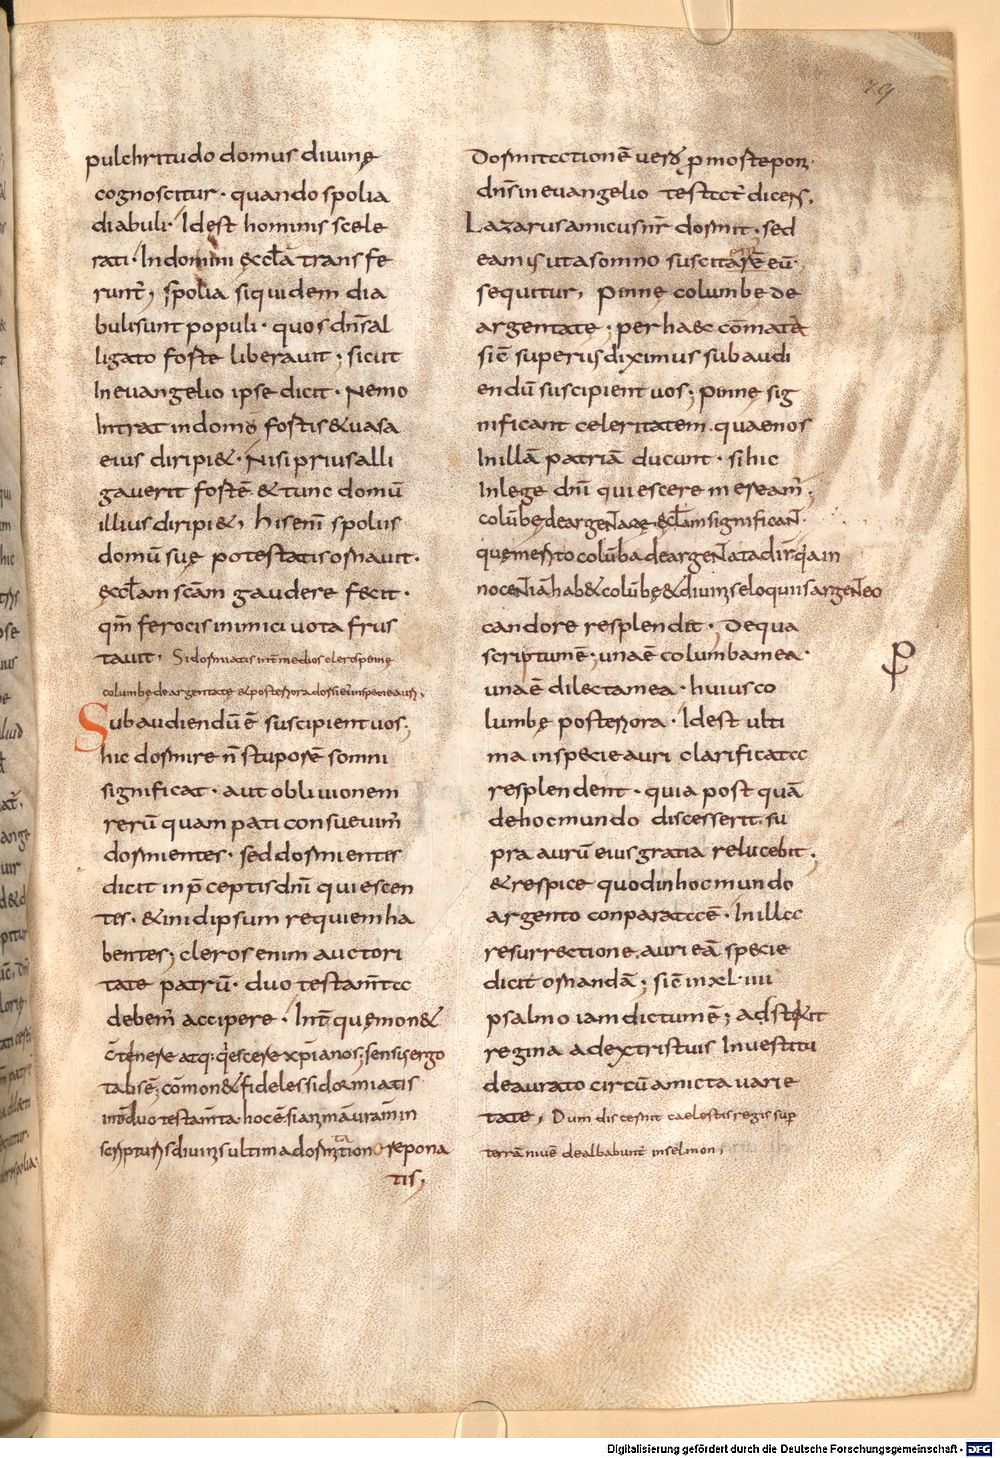 79
pulchritudo domus divinę
cognoscitur · quando spolia
diabuli · Idest hominis scele
rati · In domini ęccłā transfe
runt̄; spolia siquidem dia
buli sunt populi · quos dn̄s al
ligato forte liberavit; sicut
In evangelio ipse dicit · Nemo
Intrat in domū fortis & vasa
eius diripi& · Nisi prius alli
gaverit fortē & tunc domū
illius diripi&; his enī spoliis
domū suę potestatis ornavit ·
ęccłam scām gaudere fecit ·
qm̄ ferocis inimici vota frus
tavit; Si dormiatis int̄ medios cleros pennę
columbę deargentatę & posteriora dorsi eius in specie auri;
Subaudiendū ē suscipient vos;
hic dormire n̄ stuporē somni
significat · aut oblivionem
rerū quam pati consuevim̄
dormientes · sed dormientis
dicit in p̄ceptis dn̄i quiescen
tes · & in idipsum requiem ha
bentes; cleros enim auctori
tate patrū · duo testam̄ta
debem̄ accipere · Int̄ quę mon&
c̄tinere atq: q̇escere xp̄ianos; sensis ergo
talis ē; cōmon& fideles si dormiatis
int̄ duo testam̄ta · hoc ē · si anīmā vram̄ in
scripturis divinis ultima dormitione repona
tis;
Dormitationē vero p mortepon
dn̄s in evangelio testat̄ dicens,
Lazarus amicus nr̄ dormit · sed
eam is ut a somno suscitarē eū ·
sequitur; Pinnę columbę de
argentatę · per haec cōmata
sic̄ superius diximus subaudi
endū suscipient vos; Pinnę sig
nificant celeritatem · quae nos
In illā patriā ducunt · si hic
In lege dn̄i quiescere meream̄;
colūbę deargentatae ęccłam significant ·
quę merito colūba deargentata dir̄ q̇a in
nocentiā hab& colūbę & divinis eloquiis argenteo
candore resplendit · De qua
scriptum ē · una ē columba mea ·
una ē dilecta mea · huius co
lumbę posteriora · Idest ulti
ma in specie auri clarificata
resplendent · quia postquā
de hoc mundo discesserit · su
pra aurū eius gratia relucebit;
& respice quod in hoc mundo
argento conparata ē · In illa
resurrectione · auri eā specie
dicit ornandā; sic̄ in xl · iiii
psalmo iam dictum ē; adstetit
regina a dextris tuis In vestitu
deaurato circū amicta varie
tate; Dum discernit caelestis regis sup
terrā nive dealbabunt̄ in selmon;
Digitalisierung gefördert durch die Deutsche Forschungsgemeinschaft - DFG